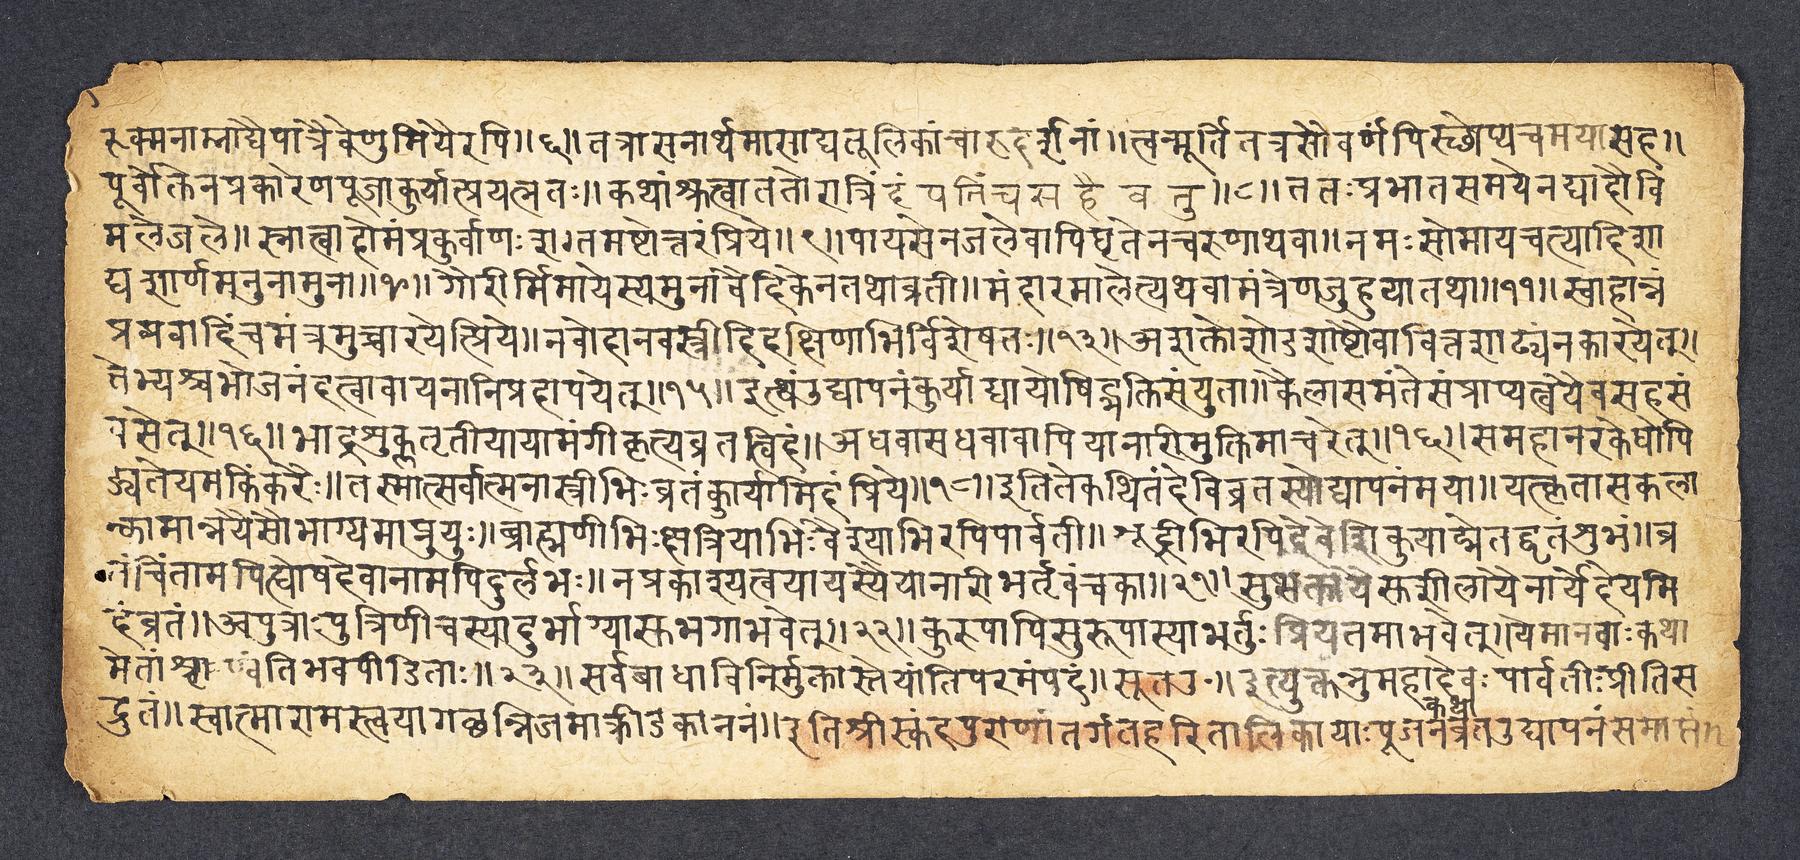 रुक्मनाम्नाद्यैपात्रैर्वेणुमियैरपि॥६॥तत्रासनार्थमासाद्यतूलिकांचारुदर्शनां॥त्वन्मूर्तितत्रसौवर्णपिस्छाप्यचमयासह॥
पूर्वोक्तेनप्रकारेणपूजाकुर्यात्प्रयत्नतः॥कथांश्रुत्वाततोरात्रिंदंपतिंचसहैवतु॥८॥ततःप्रभातसमयेनद्यादौवि
मलैजलै॥स्नात्वाहोमंप्रकुर्वाणःशतमष्टोत्तरंप्रिये॥९॥पायसेनजलैवापिघृतेनचरुणाथवा॥नमःसोमायचत्यादिशा
द्यशार्णमनुनामुना॥१०॥गौरीर्मिमायेस्यमुनांवैदिकेनतथाव्रती॥मंदारमालेत्यथवामंत्रेणजुहुयातथा॥११॥स्वाहान्नं
प्रणवादिंचमंत्रमुच्चारयेत्प्रिये॥नवोढानवस्त्रीदिदक्षिणाभिर्विशेषतः॥१३॥अशक्तोशोडशाष्टौवावित्तशाठ्यंनकारयेत्॥
तेभ्यश्चभोजनंदत्वावायनानिप्रदापयेत्॥१५॥इत्थंउद्यापनंकुर्याद्यायोषिद्भक्तिसंयुता॥कैलासमंतेसंप्राप्यत्वयैवसहसं
वसेत्॥१६॥भाद्रशुक्लतृतीयायामंगीकृत्यव्रतंत्विदं॥अधवासधवावापियानारीमुक्तिमाचरेत्॥१६॥समहानरकेघोपि
ड्यतेयमकिंकरैः॥तस्मात्सर्वात्मनास्त्रीभिःव्रतंकुार्यामिदंप्रिये॥१८॥इतितेकथितंदेविव्रतस्योद्यापनंमया॥यत्कृतासकला
न्कामान्नेयैसौभाग्यमाप्नुयुः॥ब्राह्मणीभिःक्षत्रियाभिःवैश्याभिरपिपार्वती॥शूद्रीभिरपिदेवेशिकुयाद्येतद्वृतंशुभं॥व्र
तंचिंतामपित्वोषदेवानामपिदुर्लभः॥नप्रकाश्यत्वयायस्यैयोनारीभर्तृवंचका॥२१॥सुभक्तायैस्कशीलायैनार्येदेयमि
दंव्रतं॥अपुत्राःपुत्रिणीचस्यादुर्भाग्यास्कभगाभवेत्॥२२॥कुरुपापिसुरूपास्याभर्तुःप्रियतमाभवेत्॥येमानवाःकथा
मेतांश्चा ण्वंतिभवपीडिताः॥२३॥सर्वबाधाविनिर्मुक्तास्तेयांतिपरमंपदं॥सूतउ॰॥इत्युक्तन्नुमहादेवःपार्वतीःप्रीतिस
द्रुतं॥स्वात्मारामस्त्वयागछन्निजमाक्रीडकाननं॥इतिश्रीस्कंदपुराणांतर्गतहरितालिकायाःपूजनंकथाव्रतउद्यापनंसमाप्तं॥